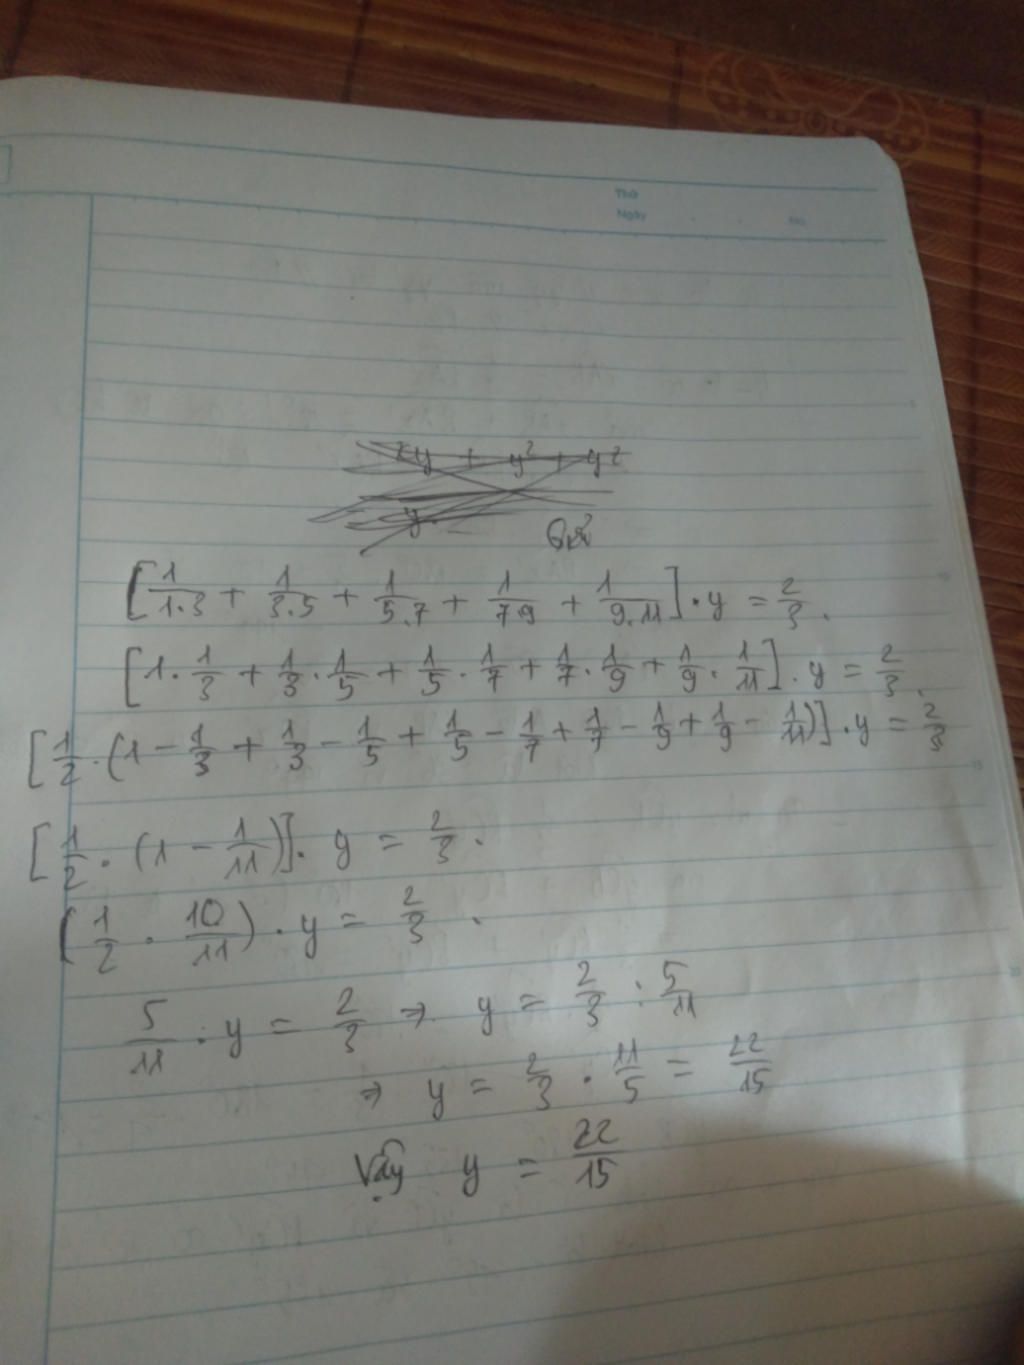 Thứ
Ngày
No.
Giải
[1/1.3 + 1/3.5 + 1/5.7 + 1/7.9 + 1/9.11] . y = 2/3 .
[1 . 1/3 + 1/3 . 1/5 + 1/5 . 1/7 + 1/7 . 1/9 + 1/9 . 1/11] . y = 2/3 .
[1/2 . (1 - 1/3 + 1/3 - 1/5 + 1/5 - 1/7 + 1/7 - 1/9 + 1/9 - 1/11)] . y = 2/3
[1/2 . (1 - 1/11)] . y = 2/3 .
(1/2 . 10/11) . y = 2/3 .
5/11 . y = 2/3 ⇒ y = 2/3 : 5/11
⇒ y = 2/3 . 11/5 = 22/15
Vậy y = 22/15